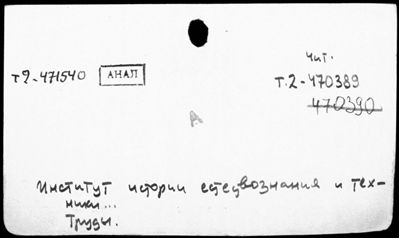 чит.
т2-471540 АНАЛ т.2-470389
470390
А
Институт истории естествознания и тех-
ники...
Труды.